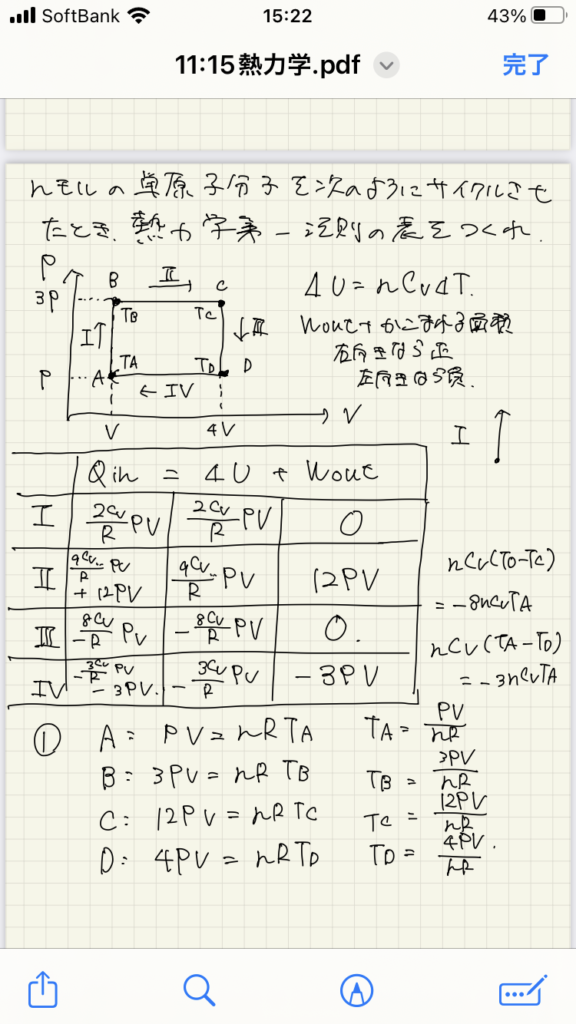 SoftBank 15:22 43%
11:15熱力学.pdf 完了
nモルの単原子分子を次のようにサイクルさせ
たとき、熱力学第一法則の表をつくれ.
P
3P
P
B II C
TB TC
I III
A TA TD D
← IV
V 4V V
ΔU = nCvΔT.
Wout + かこまれる面積
右向きなら正
左向きなら負.
I
Qin = ΔU + Wout
I 2Cv/R PV 2Cv/R PV 0
II 9Cv/R PV + 12PV 9Cv/R PV 12PV
III -8Cv/R PV -8Cv/R PV 0.
IV -3Cv/R PV - 3PV. -3Cv/R PV -3PV
nCv(TD-TC)
= -8nCvTA
nCv(TA-TD)
= -3nCvTA
① A: PV = nRTA TA = PV/nR
B: 3PV = nRTB TB = 3PV/nR
C: 12PV = nRTC TC = 12PV/nR
D: 4PV = nRTD TD = 4PV/nR.